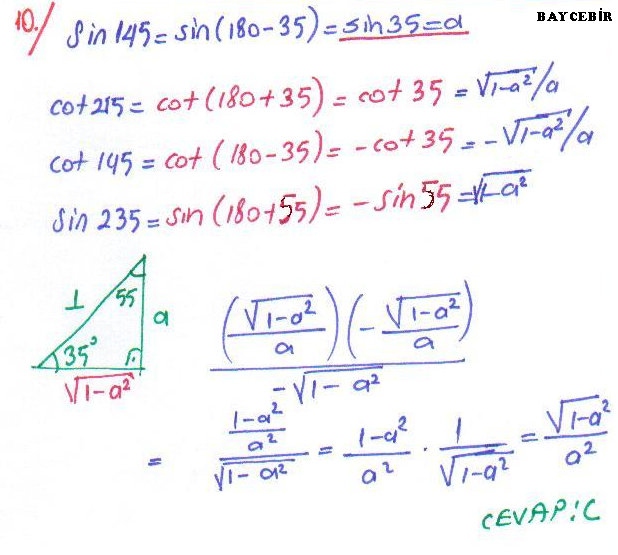 BAYCEBİR
10./ Sin 145 = sin(180-35) = sin35 = a
cot 215 = cot(180+35) = cot 35 = √1-a²/a
cot 145 = cot(180-35) = -cot 35 = -√1-a²/a
Sin 235 = sin(180+55) = -sin 55 = √1-a²
1 55 a
35°
√1-a²
(√1-a²/a)(-√1-a²/a) / -√1-a²
= (1-a²/a²)/(√1-a²) = 1-a²/a² · 1/√1-a² = √1-a²/a²
CEVAP:C